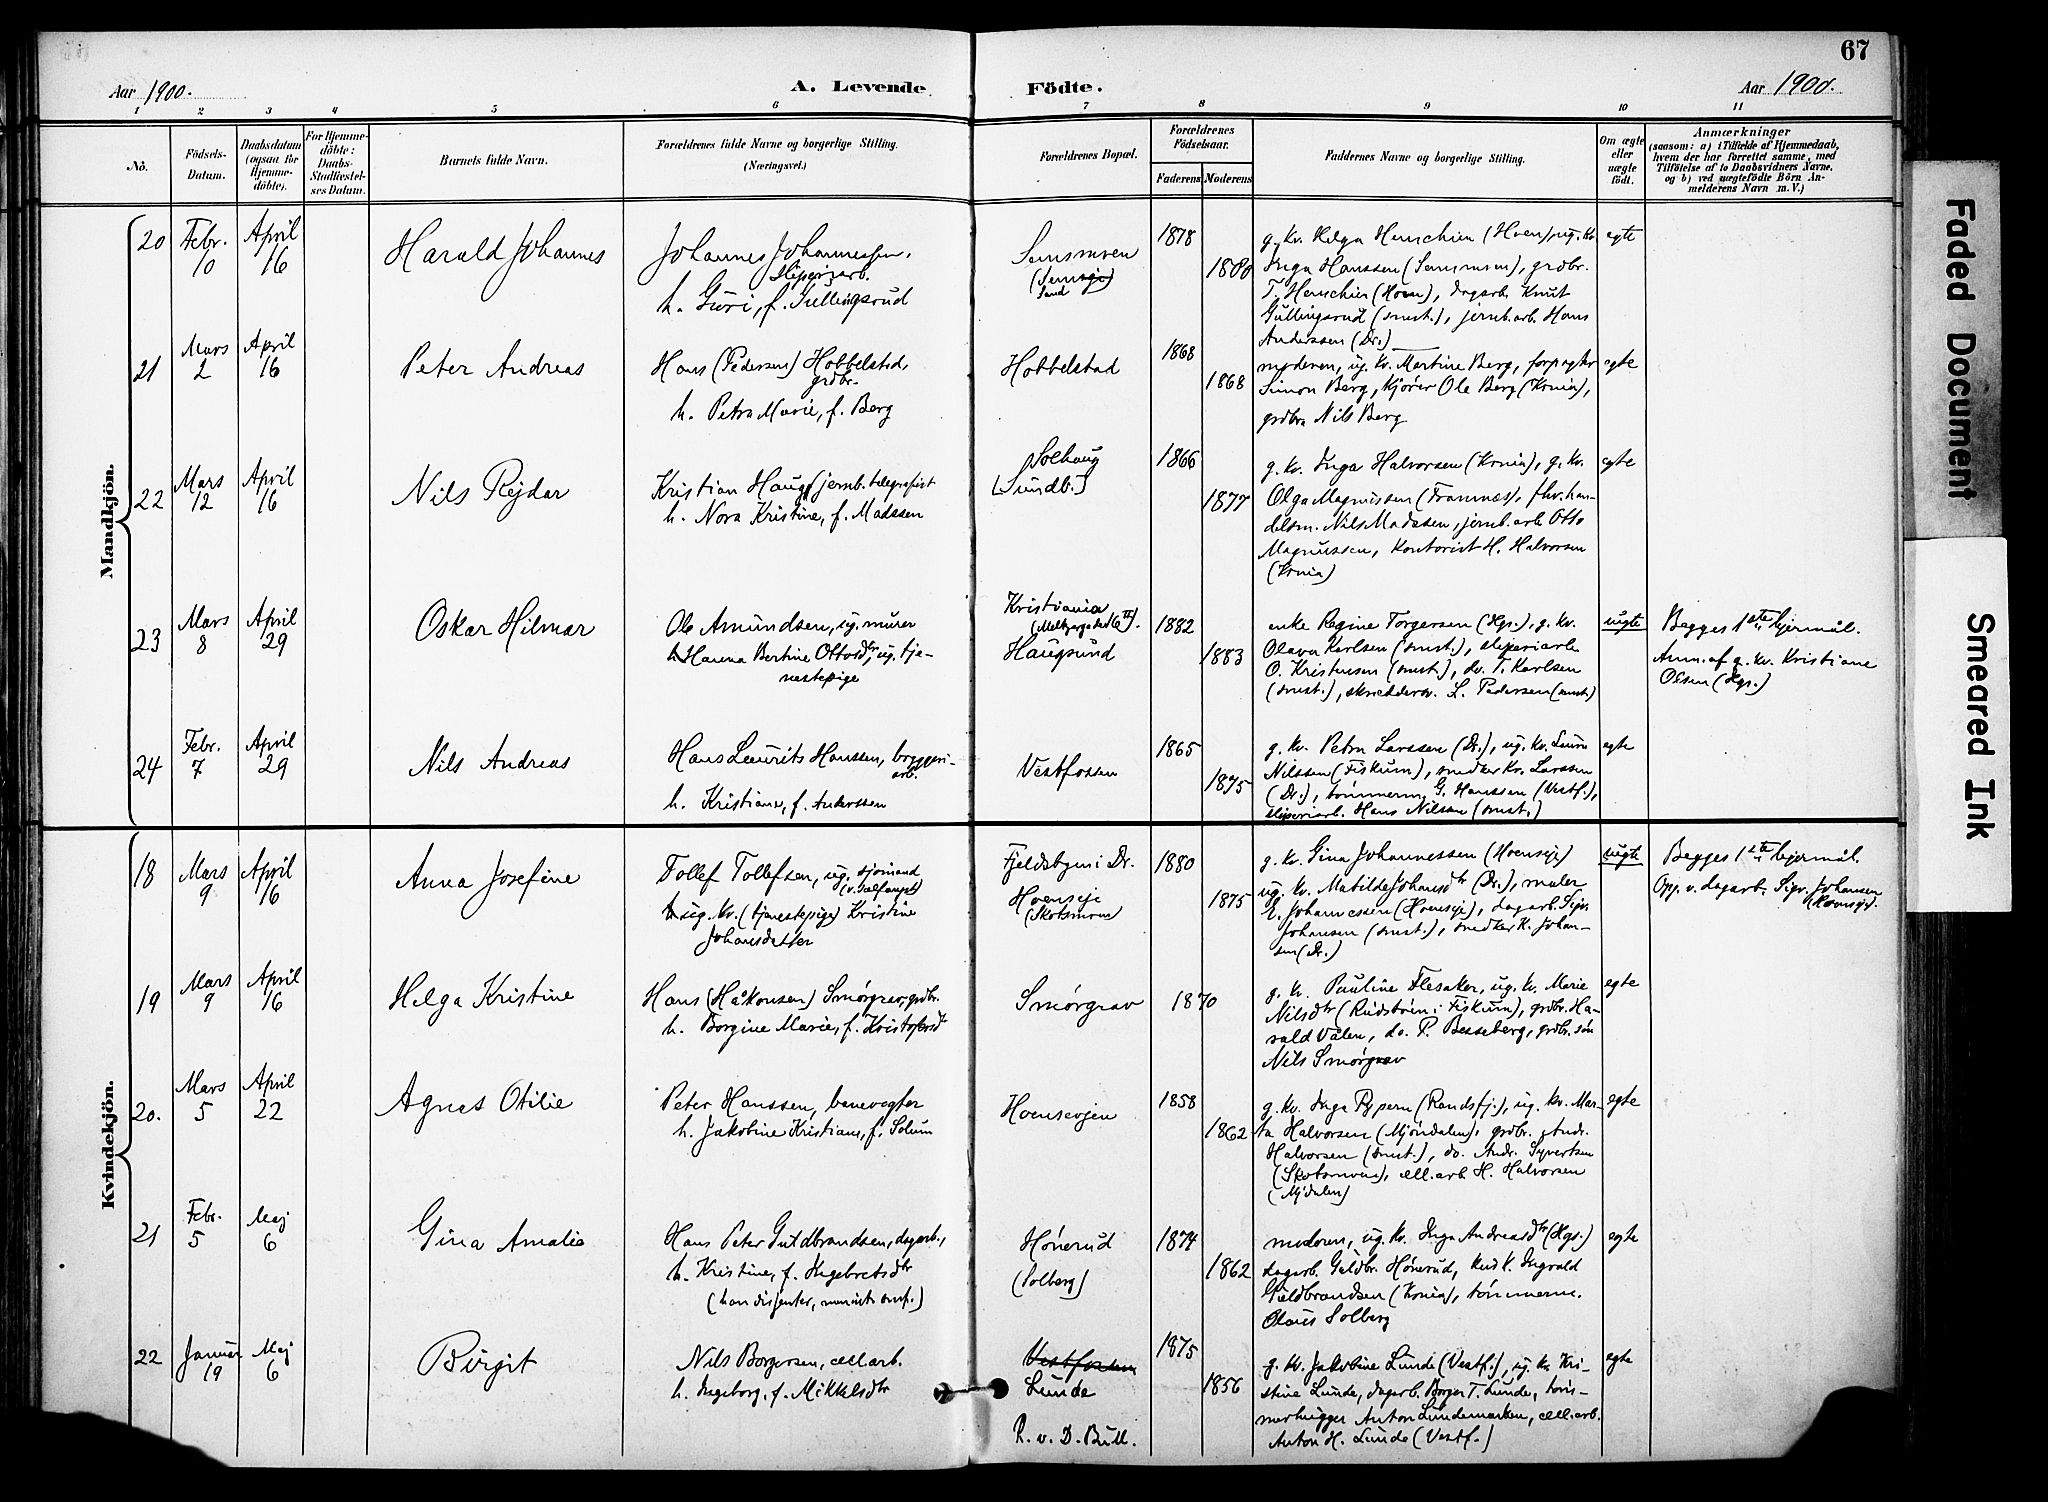 67
Aar 1900.
A. Levende
Födte.
Aar 1900.
1 2 3 4 5 6 7 8 9 10 11
No.
Födsels-
Datum.
Daabsdatum
(ogsaa for
Hjemme-
döbte).
For Hjemme-
döbte:
Daabs-
Stadfæstel-
ses Datum.
Barnets fulde Navn.
Forældrenes fulde Navne og borgerlige Stilling.
(Næringsvei.)
Forældrenes Bopæl.
Forældrenes
Födselsaar.
Faderens Moderens
Faddernes Navne og borgerlige Stilling.
Om ægte
eller
uægte
födt.
Anmærkninger
(saasom: a) i Tilfælde af Hjemmedaab,
hvem der har forrettet samme, med
Tilföielse af to Daabsvidners Navne,
og b) ved uægtefödte Börn An-
melderens Navn m. V.)
Mandkjön.
20
Febr.
10
April
16
Harald Johannes
Johannes Johannessen,
sliperiarb.
h. Guri, f. Gullingsrud
Semsmoen
1878
1880
g. kv. Helga Henschien (Hoen), ug. kv.
Inga Hanssen (Semsmoen), grdbr.
T. Henschien (Hoen), dagarb. Knut
Gullingsrud (smst.), jernb.arb. Hans
Anderssen (Dr.)
egte
21
Mars
2
April
16
Peter Andreas
Hans (Pedersen) Hobbelstad,
grdbr.
h. Petra Marie, f. Berg
Hobbelstad
1868
1868
moderen, ug. kv. Martine Berg, forpagter
Simon Berg, kjører Ole Berg (Krnia),
grdbr. Nils Berg
egte
22
Mars
12
April
16
Nils Rejdar
Kristian Haug, jernb. telegrafist
h. Nora Kristine, f. Madssen
Solhaug
[Sundb.]
1866
1877
g. kv. Inga Halvorsen (Krnia), g. kv.
Olga Magnussen (Framnæs), fhv. han-
delsm. Nils Madssen, jernb.arb. Otto
Magnussen, kontorist H. Halvorsen
(Krnia)
egte
23
Mars
8
April
29
Oskar Hilmar
Ole Amundsen, ug. murer
Harena Bertine Ottosdtr, ug. tje-
nestepige
Kristiania
Haugsund
1882
1883
enke Regine Torgersen (Hgs.), g. kv.
Olava Karlsen (smst.), sliperiarb.
O. Kristensen (smst.), do. T. Karlsen
(smst.), skræddersv. L. Pedersen (smst.)
uegte
Begges 1ste lejermål.
Anm. af g. kv. Kristiane
Olsen (Hgs.)
24
Febr.
7
April
29
Nils Andreas
Hans Laurits Hanssen, bryggeri-
arb.
h. Kristiane, f. Anderssen
Vestfossen
1865
1875
g. kv. Petra Larssen (Dr.), ug. kv. Laura
Nilssen (Fiskum), snedker Kr. Larssen
(Dr.), tømmerm. G. Hanssen (Vestf.),
sliperiarb. Hans Nilsen (smst.)
egte
Kvindekjön.
18
Mars
9
April
16
Anna Josefine
Tollef Tollefsen, ug. sjømand
ug. kv. (tjenestepige) Kristine
Johansdatter
Fjeldsbyen i Dr.
Hoenseje
(Skotsmoen
1880
1875
g. kv. Gina Johannessen (Hoenseje)
ug. kv. Matilde Johansdtr (Dr.), maler
E. Johannessen (Hoenseje), dagarb. Sigv.
Johansen (smst.), snedker K. Johan-
sen (Dr.)
uegte
Begges 1ste lejermål.
Opg. v. dagarb. Sigv. Johansen
(Hoenseje).
19
Mars
9
April
16
Helga Kristine
Hans (Håkonsen) Smørgrav, grdbr.
h. Borgine Marie, f. Kristofersdtr
Smørgrav
1870
g. kv. Pauline Flesaker, ug. kv. Marie
Nilsdtr (Rudsbråen i Fiskum), grdbr. Ha-
rald Válen, do. P. Besseberg, grdbr. søn
Nils Smørgrav
egte
20.
Mars
5
April
22
Agnes Otilie
Peter Hanssen, banevogter
h. Jakobine Kristiane, f. Solum
Hoensvejen
1858
1862
g. kv. Inga Rypern (Randsfj.), ug. kv. Mar-
ta Halvorsen (Mjøndalen), grdbr. Andr.
Halvorsen (smst.), do. Andr. Syvertsen
(Skotsmoen), cell.arb. H. Halvorsen
(Mjdalen)
egte
21
Febr.
5
Maj
6
Gina Amalie
Hans Peter Guldbrandsen, dagarb.,
h. Kristine, f. Ingebretsdtr
Hønerud
(Solberg)
1874
1862
moderen, ug. kv. Inga Andreasdtr (Hgs.)
dagarb. Guldbr. Hønerud, kusk Ingvald
Guldbrandsen (Krnia), tømmerm.
Olaus Solberg
egte
22
Januar
19
Maj
6
Birgit
Nils Borgersen, cell.arb.
h. Ingeborg, f. Mikkelsdtr
Vestfossen
Lunde
R. v. D. Bull.
1875
1856
g. kv. Jakobine Lunde (Vestf.), ug. kv. Kri-
stine Lunde, dagarb. Borger T. Lunde, tøm-
merhugger Anton Lundemarken, cell.arb.
Anton H. Lunde (Vestf.)
egte
Faded Document
Smeared Ink